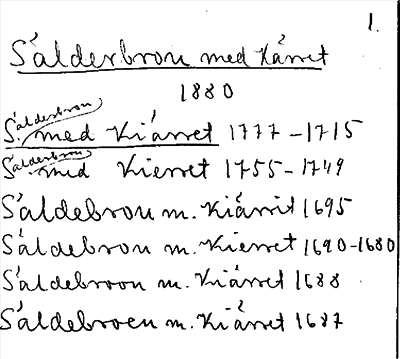 1.
Sålderbron med Kärret
1880
Sålderbron
S. med Kiärret 1777-1715
Sålderbron
S. med Kierret 1755-1749
Såldebron m. Kiärrit 1695
Såldebron m. Kierret 1690-1680
Såldebroon m. Kiärret 1688
Såldebroen m. Kiärret 1687